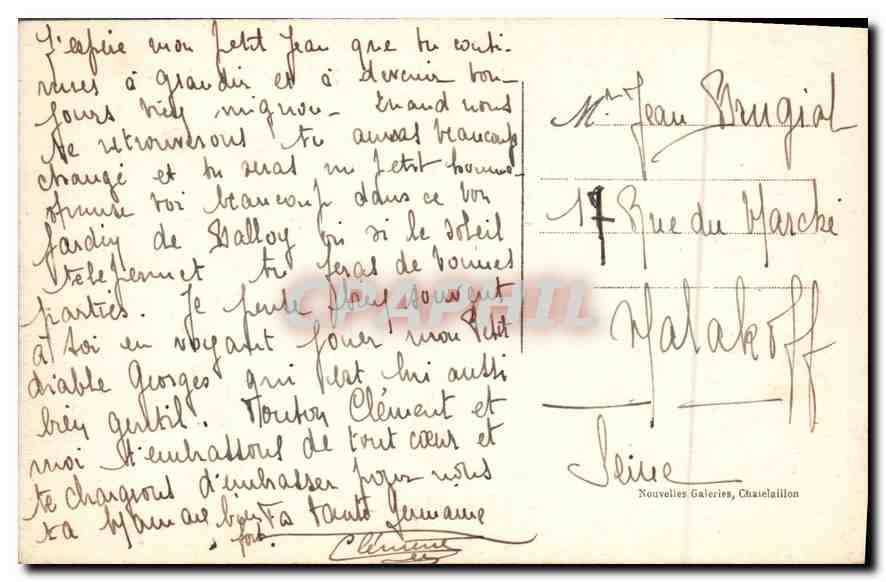 J'espère mon petit Jean que tu conti-
nues à grandir et à devenir tou-
jours bien mignon - Quand nous
te retrouverons tu auras beaucoup
changé et tu seras un petit homme
amuse toi beaucoup dans ce bon
jardin de où si le soleil
te le permet tu feras de bonnes
parties. Je pense bien souvent
à toi en voyant jouer mon petit
diable Georges qui est lui aussi
bien gentil. Tonton Clément et
moi t'embrassons de tout cœur et
te chargeons d'embrasser pour nous
ta Maman bien Ta Tante Germaine
fort.
Clémence
Mr Jean Brugial
17 Rue du Marché
Malakoff
Seine
Nouvelles Galeries, Chatelaillon
CPAPHIL